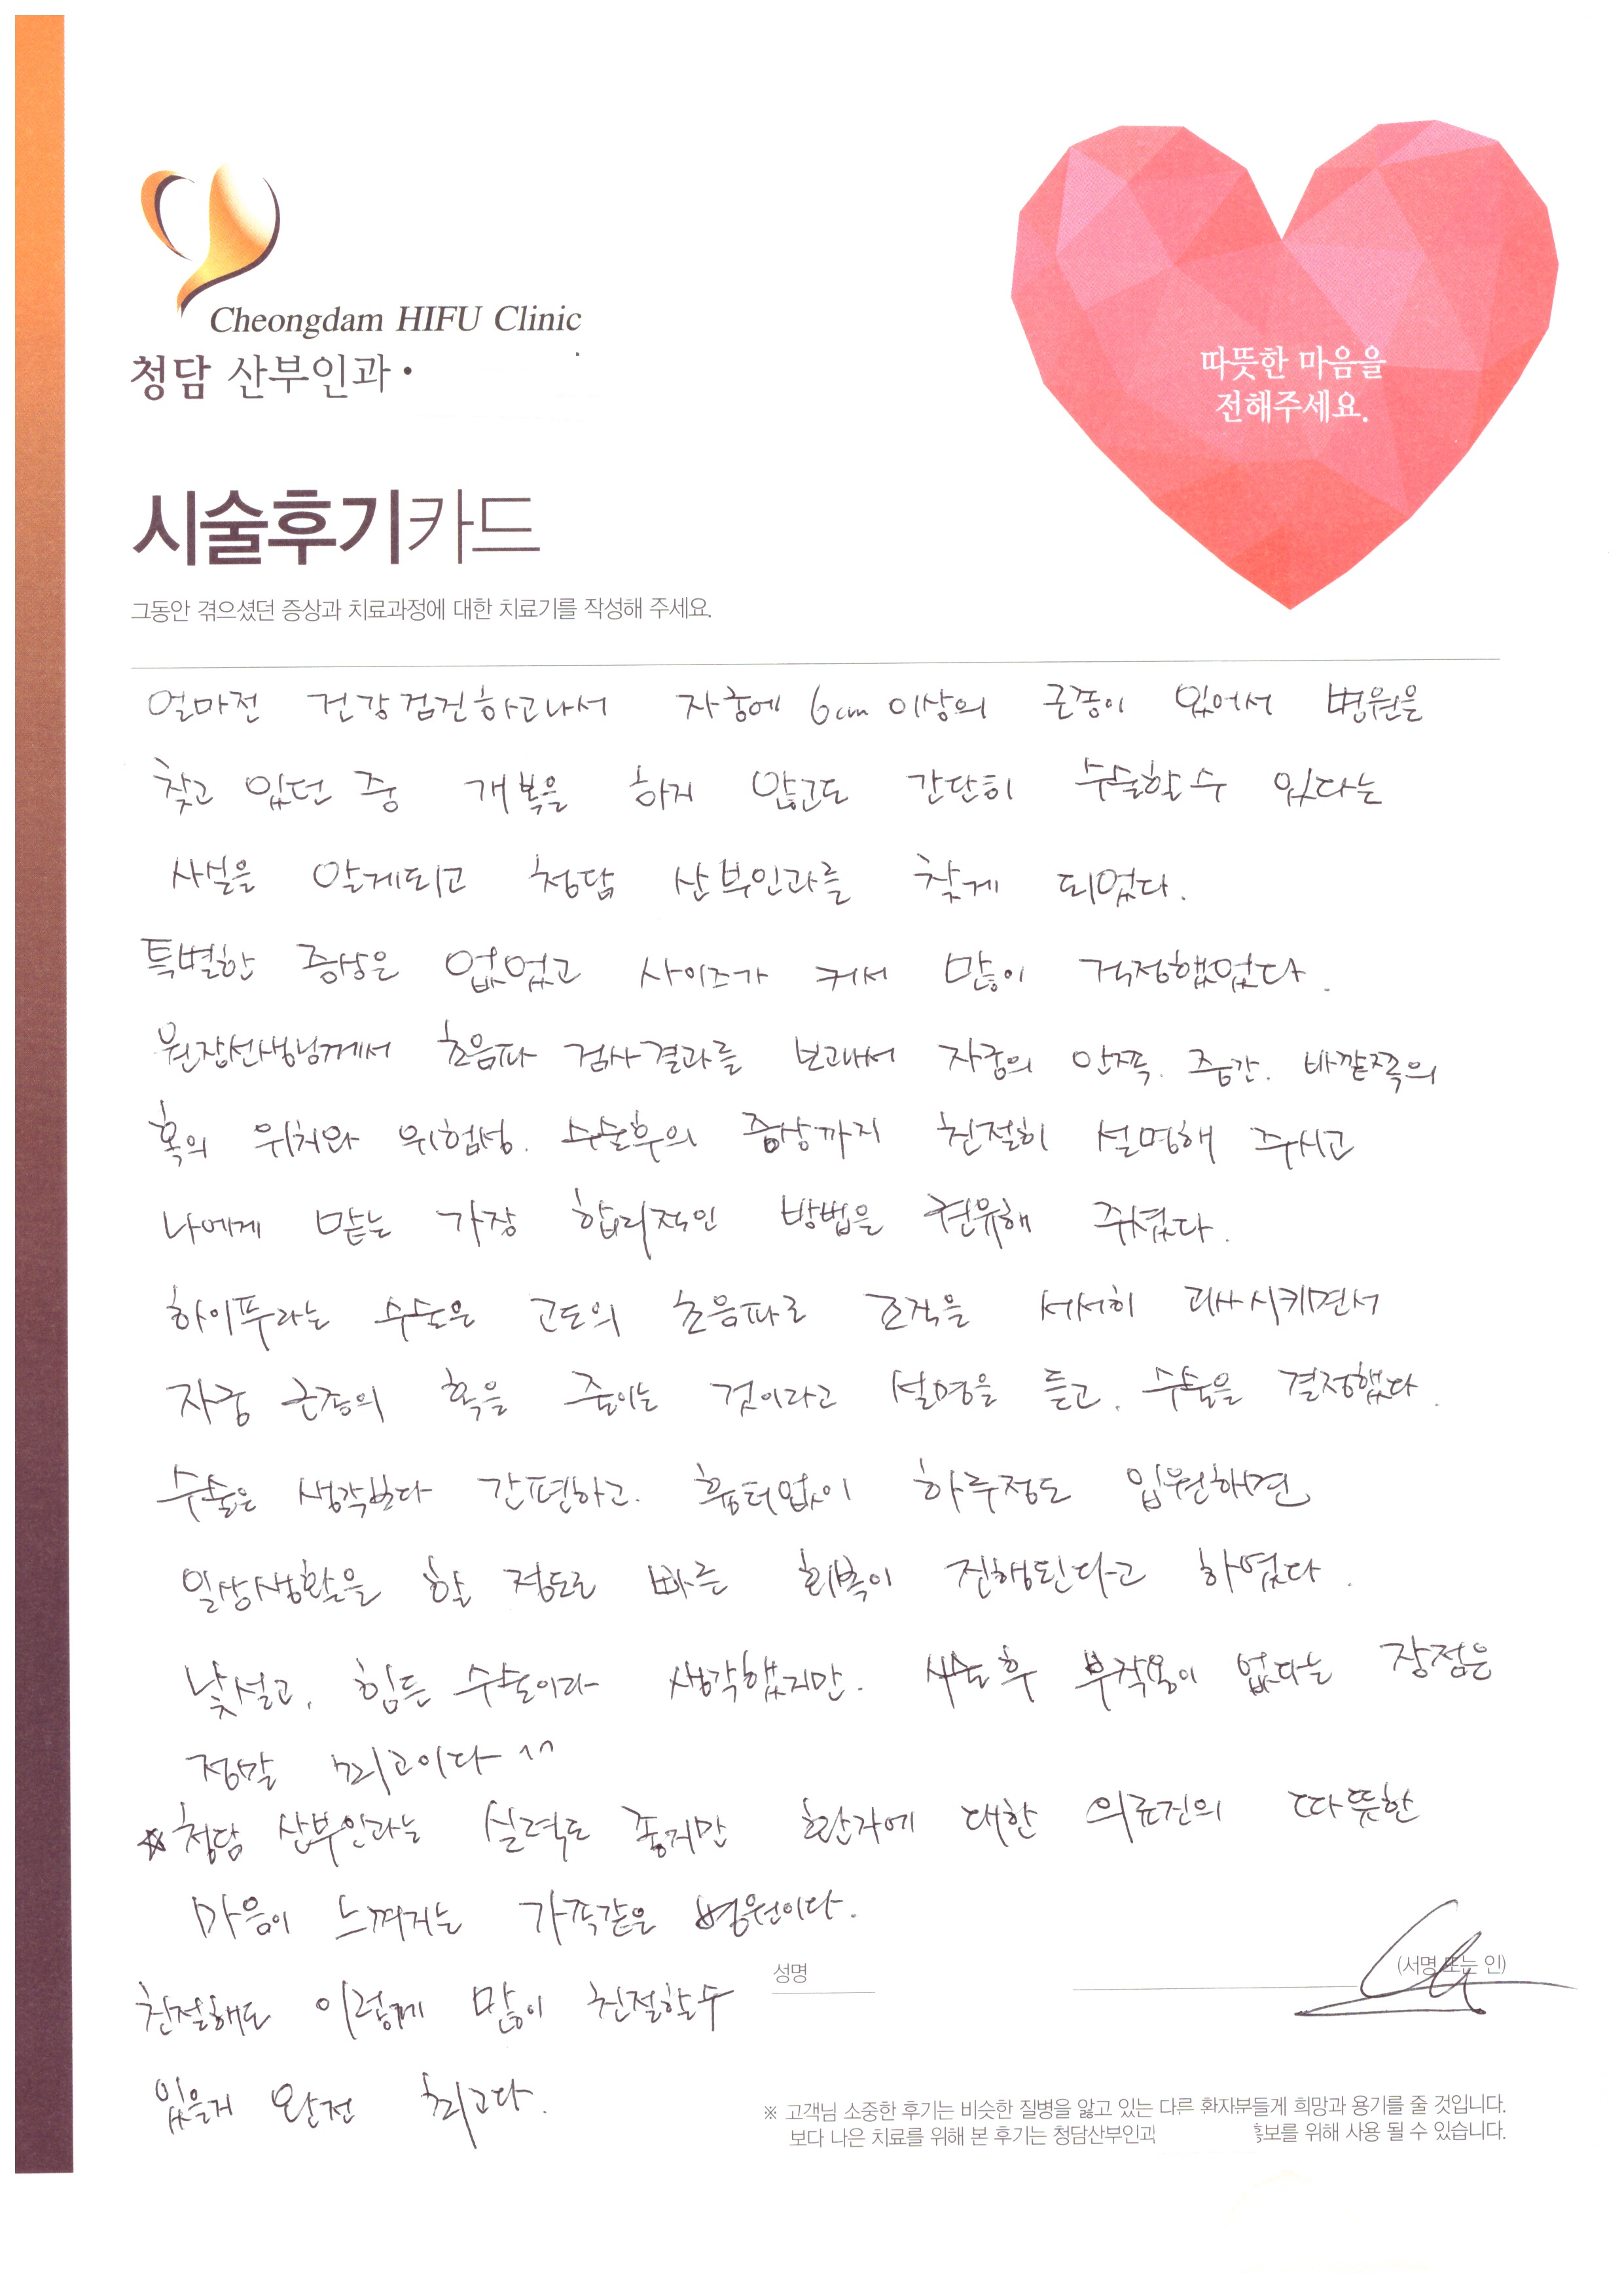 Cheongdam HIFU Clinic
청담 산부인과·
따뜻한 마음을
전해주세요.
시술후기카드
그동안 겪으셨던 증상과 치료과정에 대한 치료기를 작성해 주세요.
얼마전 건강검진하고나서 자궁에 6cm 이상의 근종이 있어서 병원을
찾고 있던 중 개복을 하지 않고도 간단히 수술할 수 있다는
사실을 알게되고 청담 산부인과를 찾게 되었다.
특별한 증상은 없었고 사이즈가 커서 많이 걱정했었다.
원장선생님께서 초음파 검사결과를 보고나서 자궁의 안쪽. 중간. 바깥쪽의
혹의 위치와 위험성. 수술후의 증상까지 친절히 설명해 주시고
나에게 맞는 가장 합리적인 방법을 권유해 주셨다.
하이푸라는 수술은 고도의 초음파로 조직을 서서히 괴사시키면서
자궁 근종의 혹을 줄이는 것이라고 설명을 듣고. 수술을 결정했다.
수술은 생각보다 간편하고. 흉터없이 하루정도 입원하면
일상생활을 할 정도로 빠른 회복이 진행된다고 하였다.
낯설고, 힘든 수술이라 생각했지만. 시술후 부작용이 없다는 장점은
정말 최고이다 ^^
☆청담 산부인과는 실력도 좋지만 환자에 대한 의료진의 따뜻한
마음이 느껴지는 가족같은 병원이다.
친절해도 이렇게 많이 친절할수
있을지 완전 최고다.
성명
(서명 또는 인)
※ 고객님 소중한 후기는 비슷한 질병을 앓고 있는 다른 환자부들게 희망과 용기를 줄 것입니다.
보다 나은 치료를 위해 본 후기는 청담산부인과 홍보를 위해 사용 될 수 있습니다.